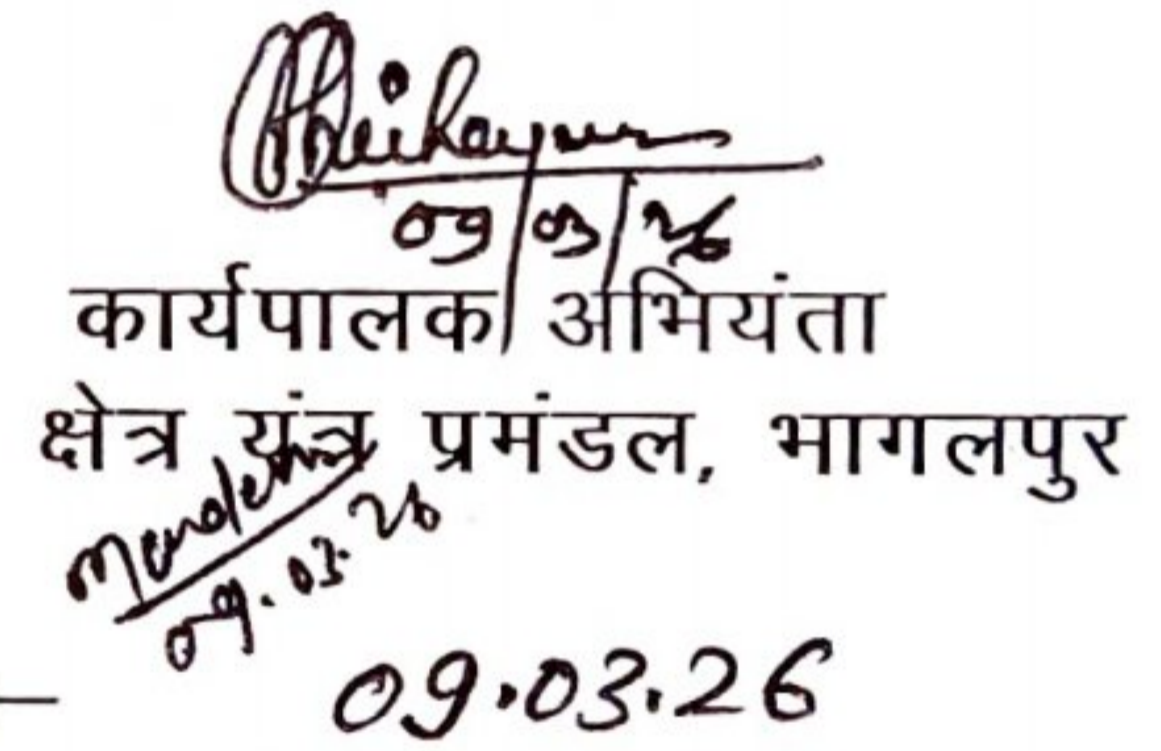 09/03/26
कार्यपालक अभियंता
क्षेत्र यंत्र प्रमंडल, भागलपुर
09.03.26
09.03.26